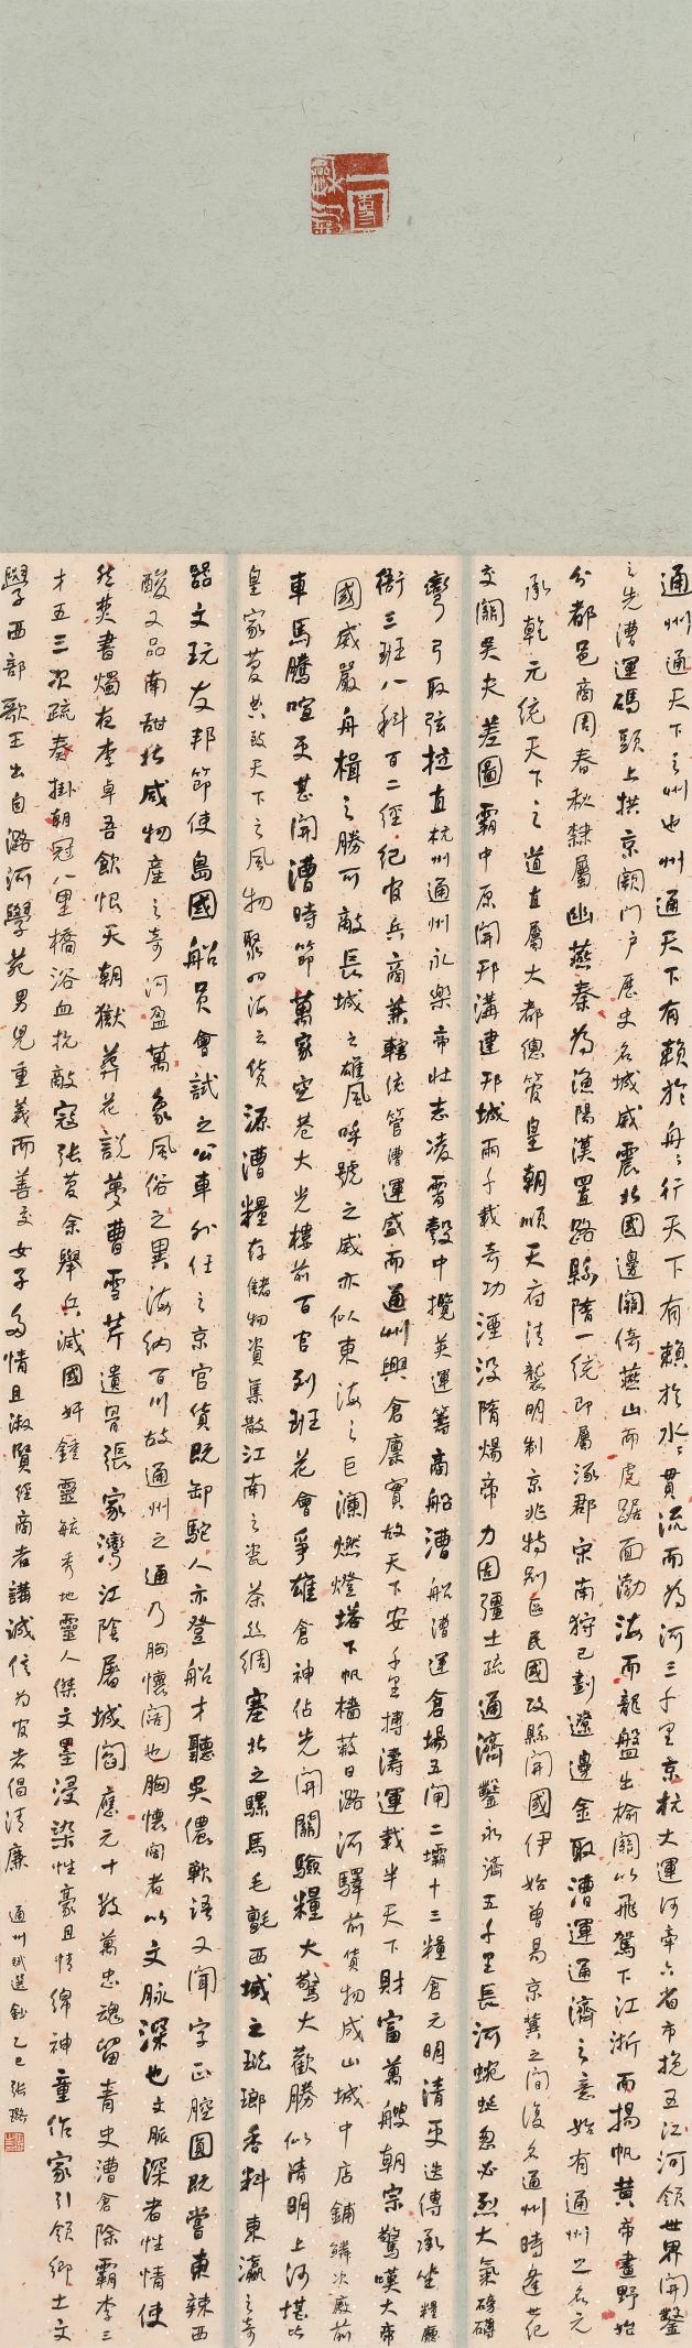 通州通天下之州也州通天下有賴於舟舟行天下有賴於水水貫流而為河三千里京杭大運河牽六省市挽五江河領世界開鑿
之先漕運碼頭上拱京闕門户歷史名城威震北國邊關倚燕山而虎踞面渤海而龍盤出榆關以飛駕下江浙而揚帆黄帝畫野始
分都邑商周春秋隸屬幽燕秦為漁陽漢置路縣隋一統即屬涿郡宋南狩已劃遼邊金取漕運通濟之意始有通州之名元
承乾元統天下之道直屬大都總管皇朝順天府清襲明制京兆特别區民國改縣開國伊始曾易京冀之間復名通州時逢世紀
交關吴夫差圖霸中原開邗溝建邗城兩千載奇功湮没隋煬帝力固疆土疏通濟鑿永濟五千里長河蜿蜒忽必烈大氣磅礴
彎弓取弦拉直杭州通州永樂帝壯志凌霄彀中攬英運籌商船漕船漕運倉場五閘二壩十三糧倉元明清更迭傳承坐糧廳
衙三班八科百二經紀官兵商兼轄統管漕運盛而通州興倉廪實故天下安千里搏濤運載半天下財富萬艘朝宗驚嘆大帝
國威嚴舟楫之勝可敵長城之雄風呼號之威亦似東海之巨瀾燃燈塔下帆檣蔽日潞河驛前貨物成山城中店鋪鱗次廠前
車馬騰喧更甚開漕時節萬家空巷大光樓前百官列班花會爭雄倉神佔先開關驗糧大驚大歡勝似清明上河堪比
皇家夢共設天下之風物聚四海之貨源漕糧存儲物資集散江南之瓷茶絲綢塞北之騾馬毛氈西域之琺瑯香料東瀛之奇
器文玩友邦節使島國船員會試之公車外任之京官貨既卸駝人亦登船才聽吴儂軟語又聞字正腔圓既嘗東辣西
酸又品南甜北咸物產之奇河盈萬象風俗之異海納百川故通州之通乃胸懷闊也胸懷闊者以文脉深也文脈深者性情使
然焚書燭夜李卓吾飲恨天朝獄葬花說夢曹雪芹遺骨張家灣江陰屠城閻應元十數萬忠魂留青史漕倉除霸李三
才五三次疏奏掛朝冠八里橋浴血抗敵寇張夢余舉兵滅國奸鍾靈毓秀地靈人傑文墨浸染性豪且情綿神童作家引領鄉土文
學西部歌王出自潞河學苑男兒重義而善交女子多情且淑賢經商者講誠信為官者倡清廉
通州賦選鈔乙巳張璐